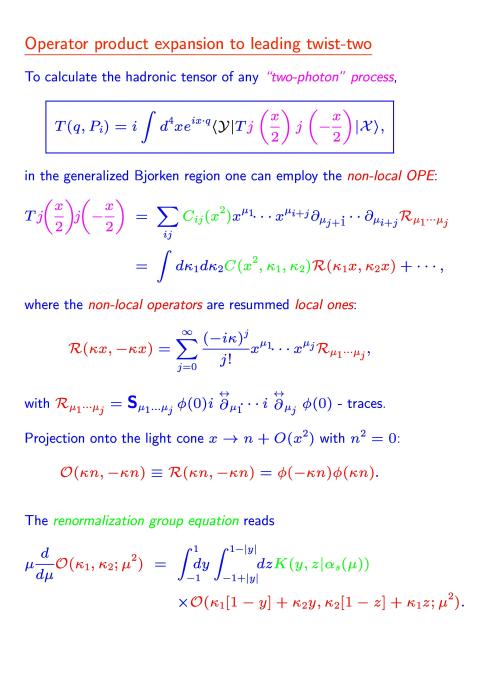 Operator product expansion to leading twist-two
To calculate the hadronic tensor of any “two-photon” process,
T(q, P_i) = i ∫ d^4x e^{ix·q} ⟨𝒴|Tj (x/2) j (−x/2) |𝒳⟩,
in the generalized Bjorken region one can employ the non-local OPE:
Tj(x/2)j(−x/2) = ∑_{ij} C_{ij}(x^2)x^{μ_1}···x^{μ_{i+j}}∂_{μ_{j+1}}···∂_{μ_{i+j}}ℛ_{μ_1···μ_j}
= ∫ dκ_1dκ_2C(x^2, κ_1, κ_2)ℛ(κ_1x, κ_2x) + ···,
where the non-local operators are resummed local ones:
ℛ(κx, −κx) = ∑_{j=0}^{∞} (−iκ)^j/j! x^{μ_1}···x^{μ_j}ℛ_{μ_1...μ_j},
with ℛ_{μ_1...μ_j} = S_{μ_1...μ_j} φ(0)i ∂↔_{μ_1}···i ∂↔_{μ_j} φ(0) - traces.
Projection onto the light cone x → n + O(x^2) with n^2 = 0:
𝒪(κn, −κn) ≡ ℛ(κn, −κn) = φ(−κn)φ(κn).
The renormalization group equation reads
μ d/dμ 𝒪(κ_1, κ_2; μ^2) = ∫_{−1}^{1} dy ∫_{−1+|y|}^{1−|y|} dzK(y, z|α_s(μ))
×𝒪(κ_1[1 − y] + κ_2y, κ_2[1 − z] + κ_1z; μ^2).